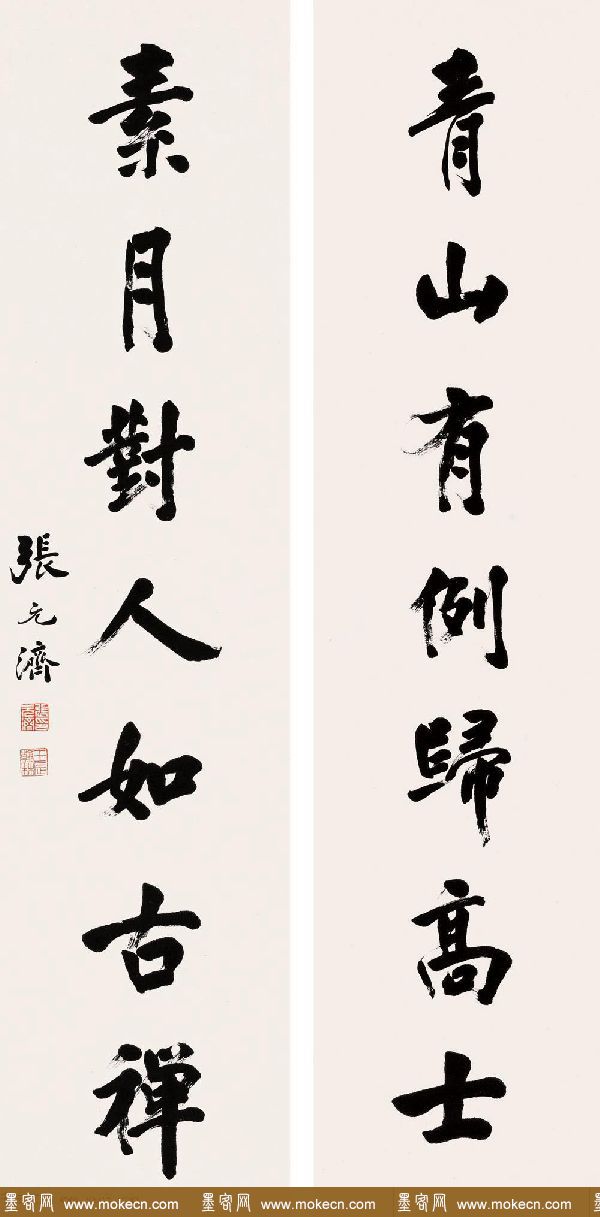 青山有例歸高士
素月對人如古禪
張元濟
墨客网 www.mokecn.com 墨客网 www.mokecn.com 墨客网 www.mokecn.com